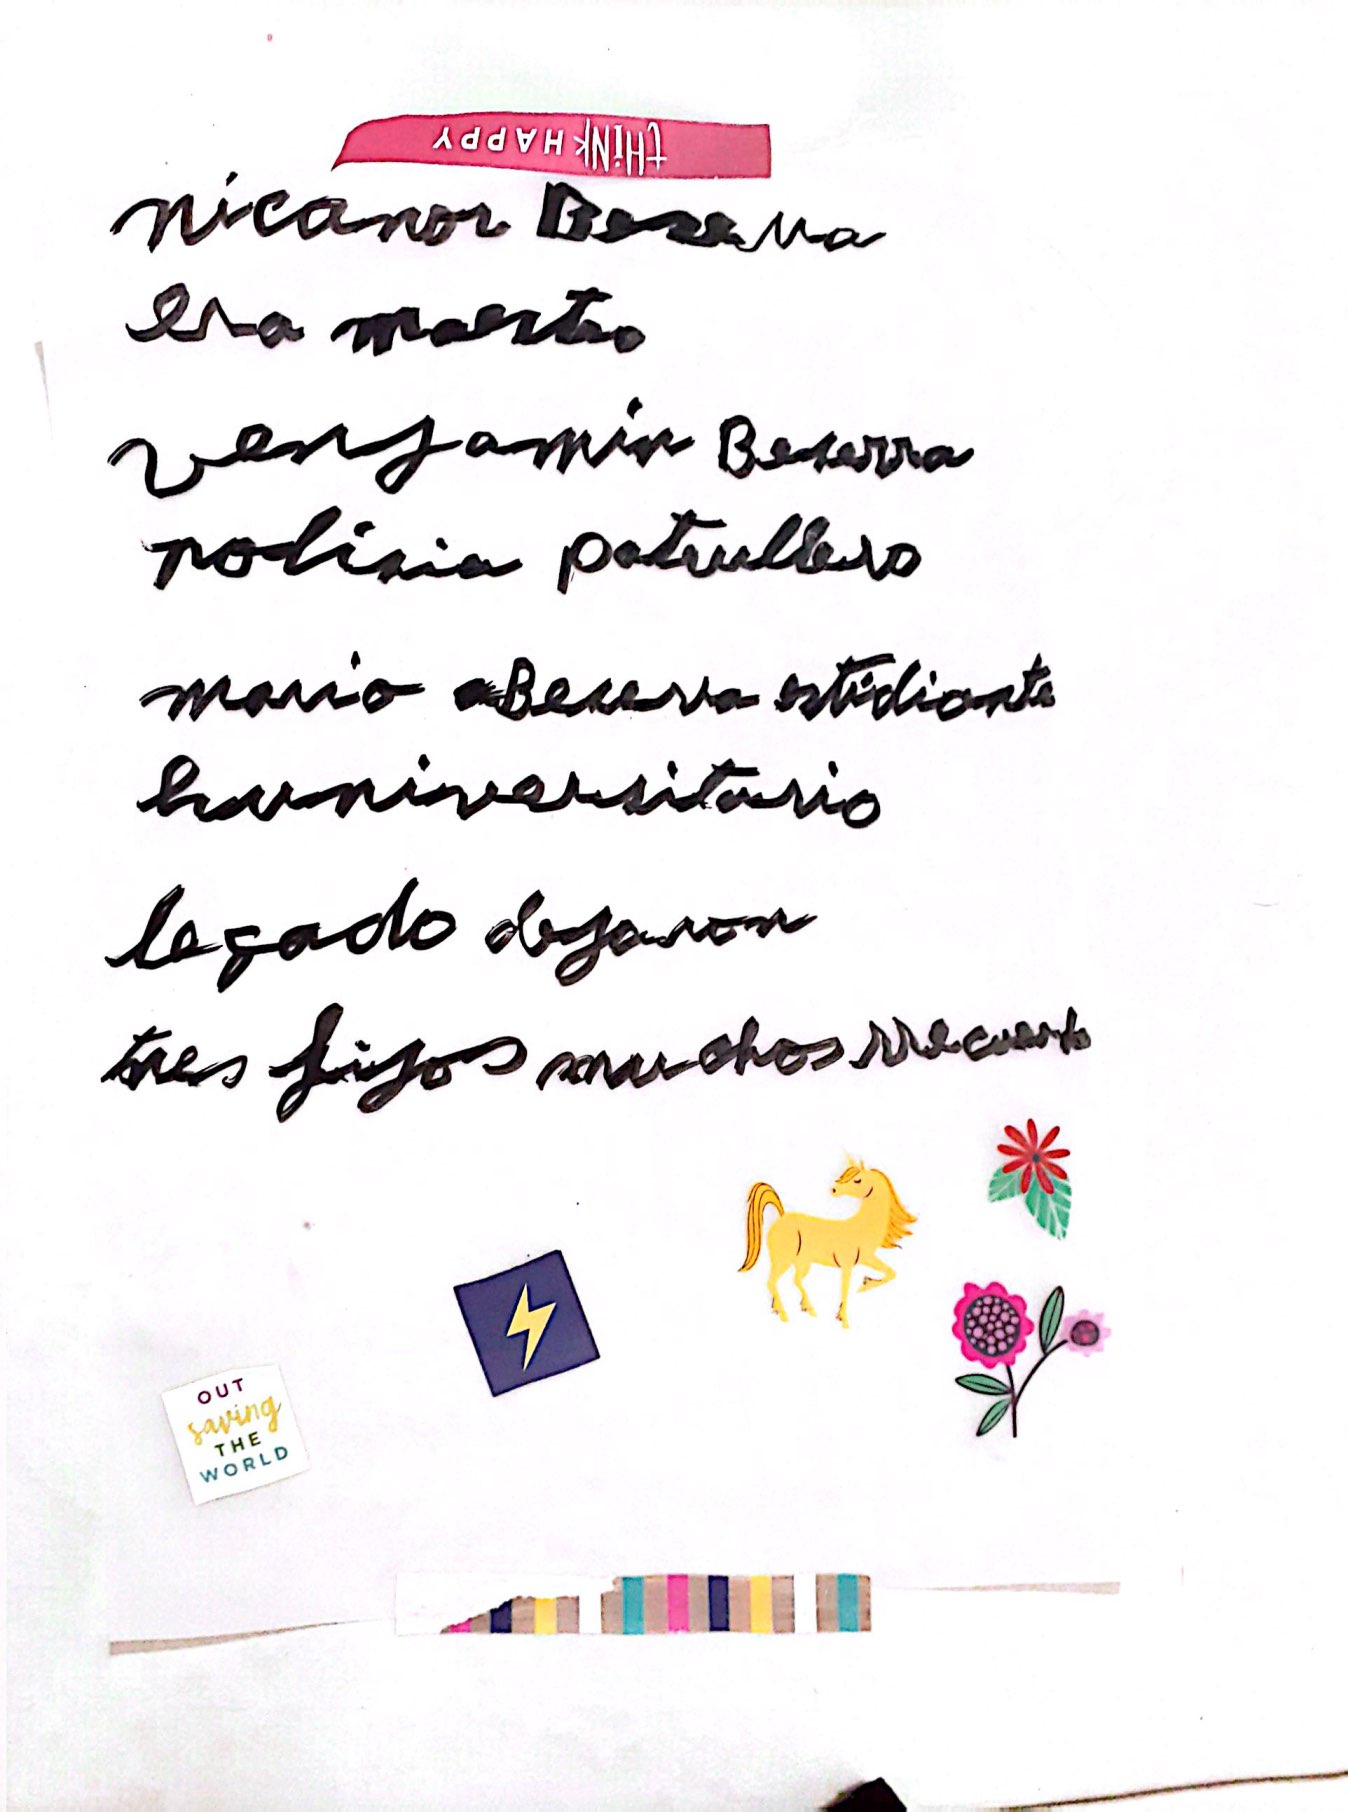 tHiNK HAPPY
nicanor Bezerra
era maestro
venjamin Bezerra
polisia patrullero
mario Bezerra estidiante
huniversitario
legado dejaron
tres hijos muchos rrecuerdo
OUT
saving
THE
WORLD